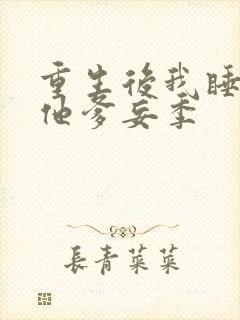 重生後我睡
他爹妄季
長青菜菜